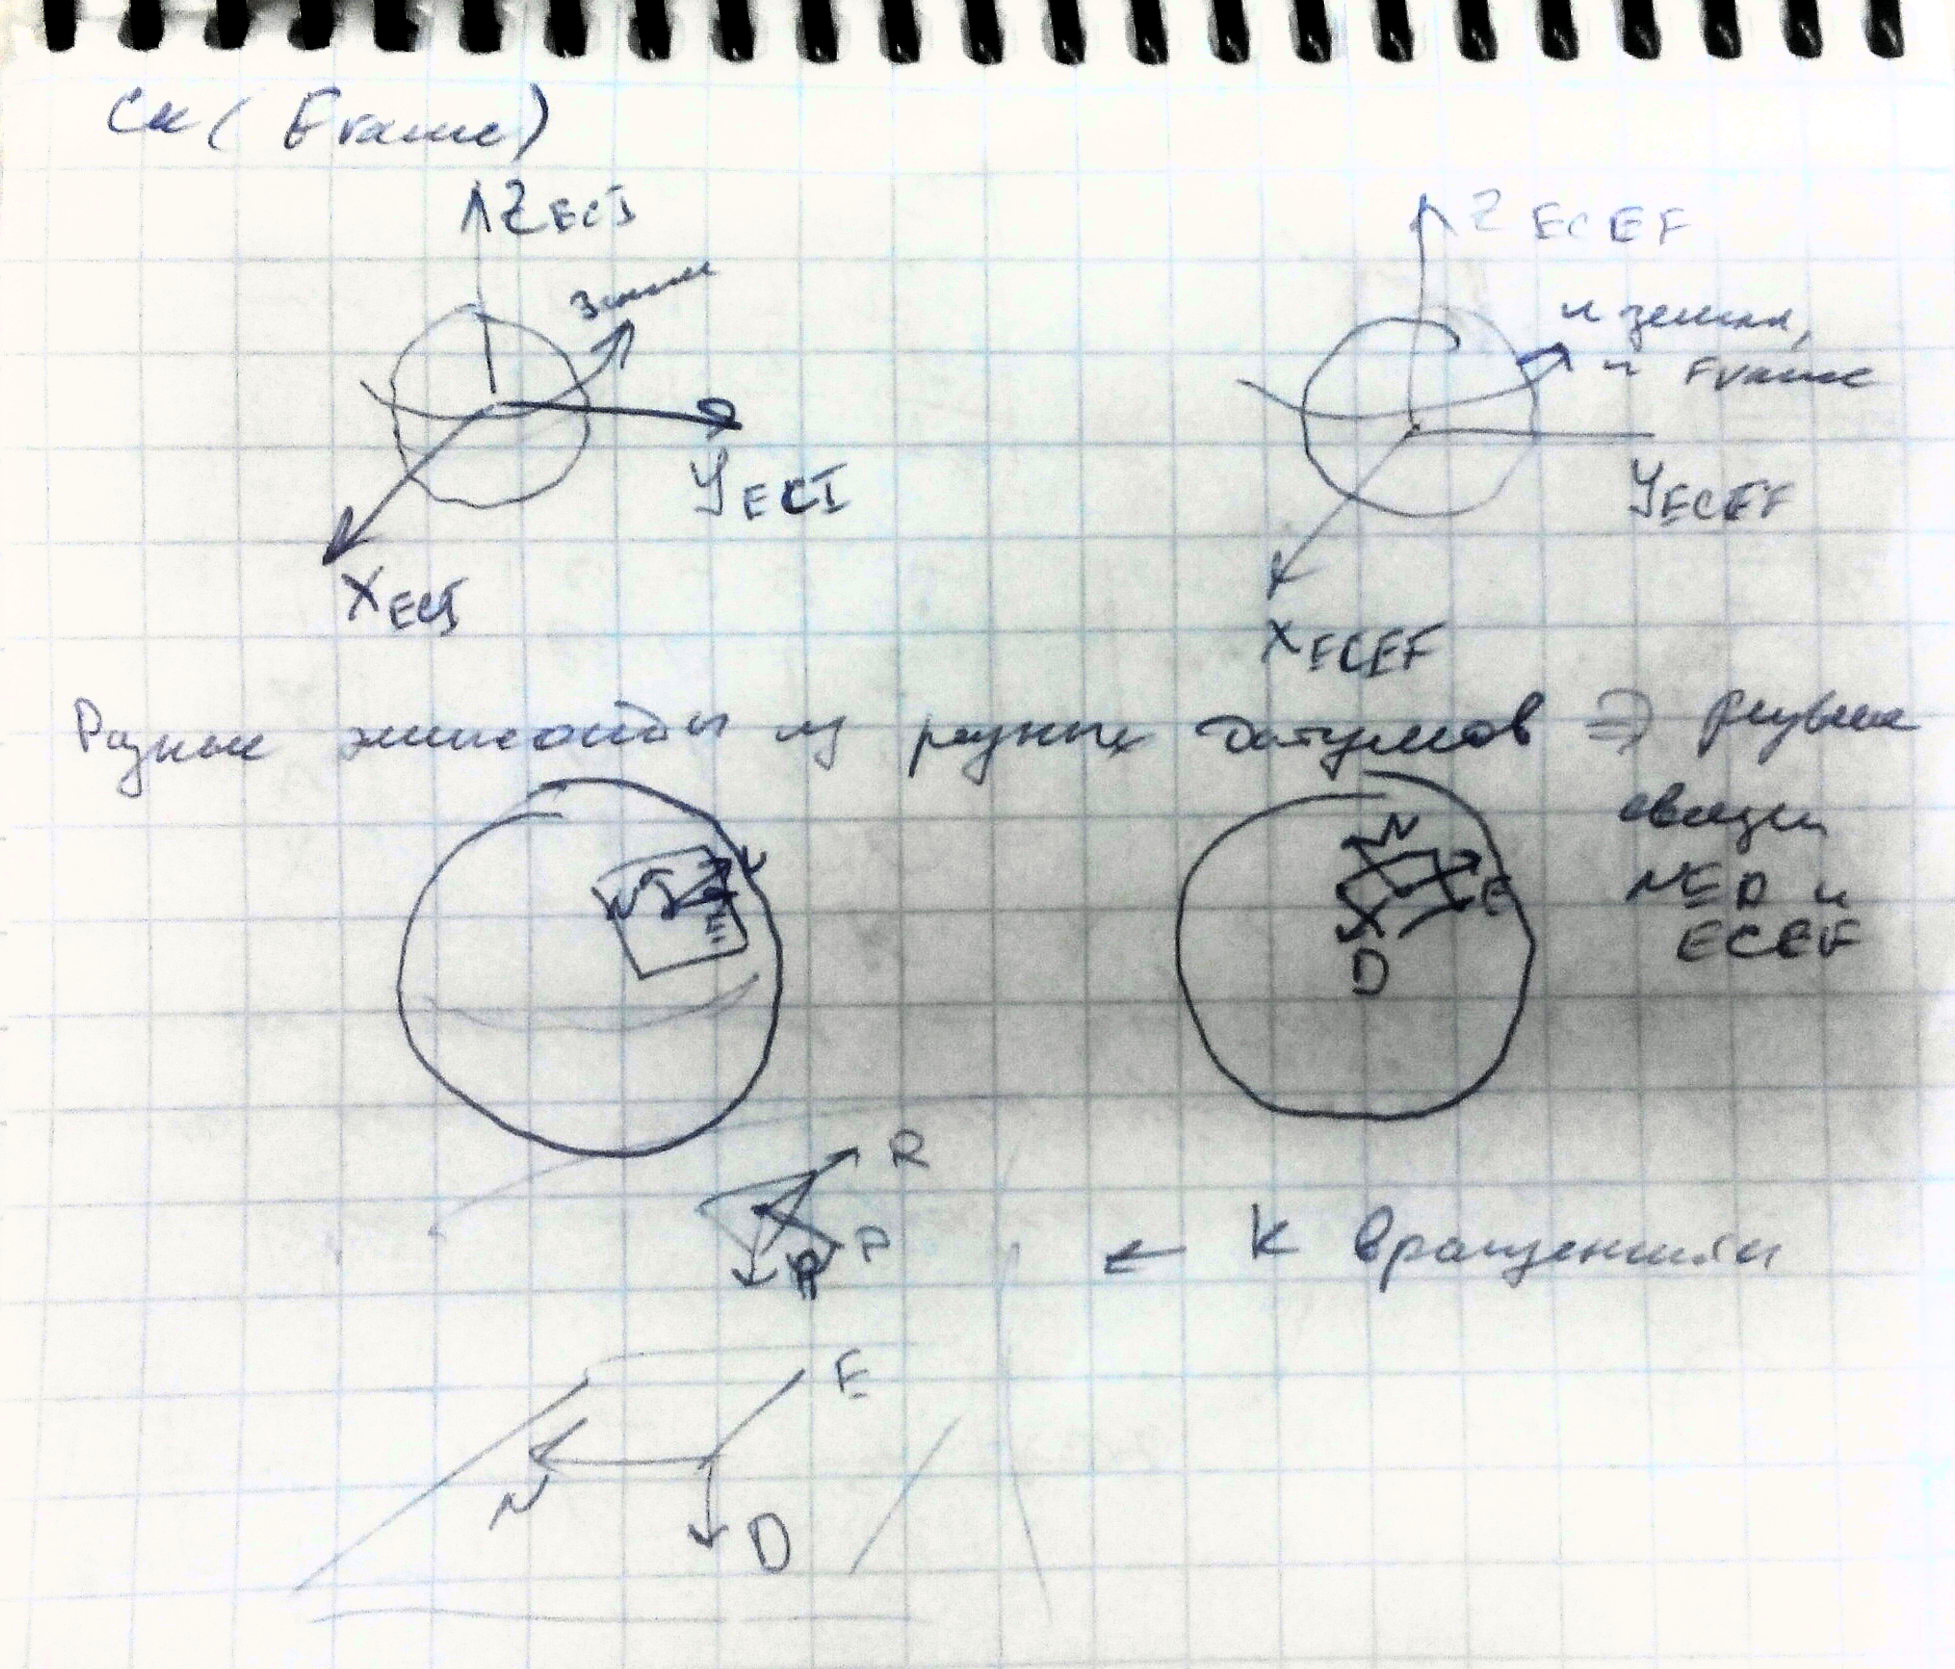 Ск (Frame)
Z ECI
Z ECEF
Земля
и земля,
и Frame
Y ECI
Y ECEF
X ECI
X ECEF
Разные эллипсоиды из разных датумов ⇒ разные
связи
NED и
ECEF
N
E
D
R
P
← К вращениям
E
N
D